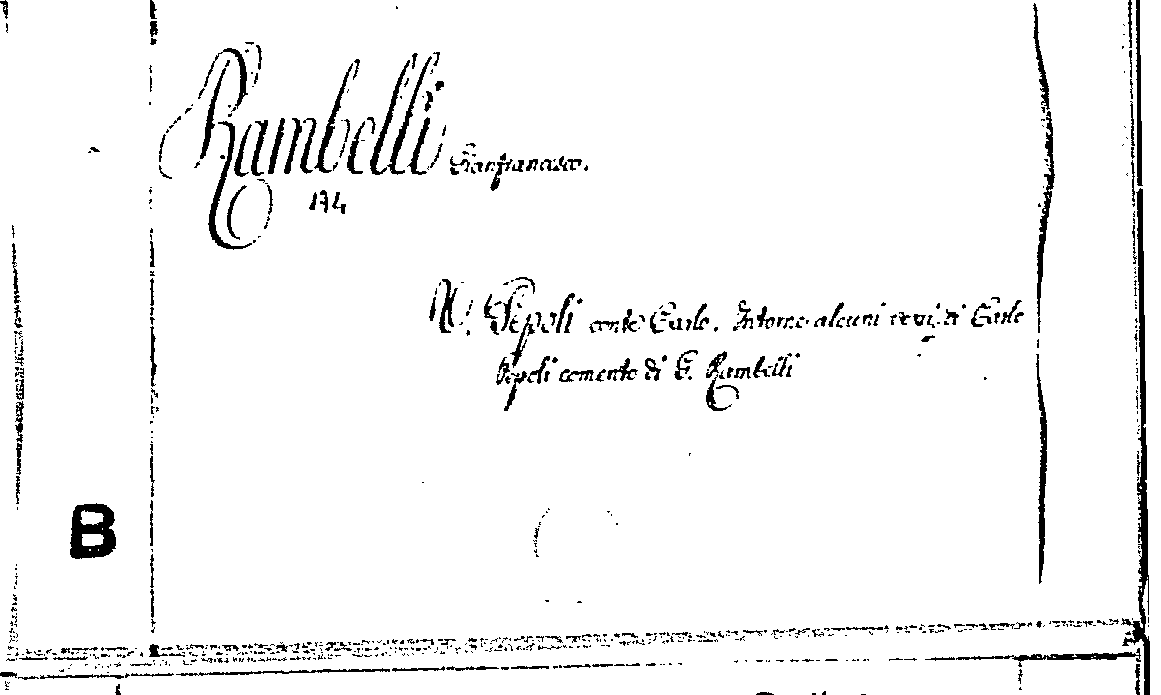 Rambelli Gianfrancesco.
174
V. Pepoli conte Carlo. Intorno alcuni versi di Carlo
Pepoli comento di G. Rambelli
B